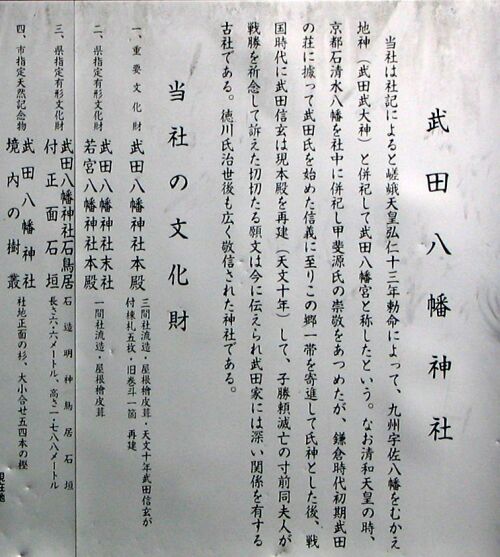 武田八幡神社
当社は社記によると嵯峨天皇弘仁十三年勅命によって、九州宇佐八幡をむかえ
地神（武田武大神）と併祀して武田八幡宮と称したという。なお清和天皇の時、
京都石清水八幡を社中に併祀し甲斐源氏の崇敬をあつめたが、鎌倉時代初期武田
の荘に據って武田氏を始めた信義に至りこの郷一帯を寄進して氏神とした後、戦
国時代に武田信玄は現本殿を再建（天文十年）して、子勝頼滅亡の寸前同夫人が
戦勝を祈念して訴えた切切たる願文は今に伝えられ武田家には深い関係を有する
古社である。徳川氏治世後も広く敬信された神社である。
当社の文化財
一、重要文化財 武田八幡神社本殿 三間社流造・屋根檜皮葺・天文十年武田信玄が
付棟札五枚・旧巻斗一箇 再建
二、県指定有形文化財 武田八幡神社末社
若宮八幡神社本殿 一間社流造・屋根檜皮葺
三、県指定有形文化財 武田八幡神社石鳥居 石造明神鳥居石垣
付正面石垣 長さ六・六メートル、高さ一・七八八メートル
四、市指定天然記念物 武田八幡神社
境内の樹叢 社地正面の杉、大小合せ五四本の樫
現在地